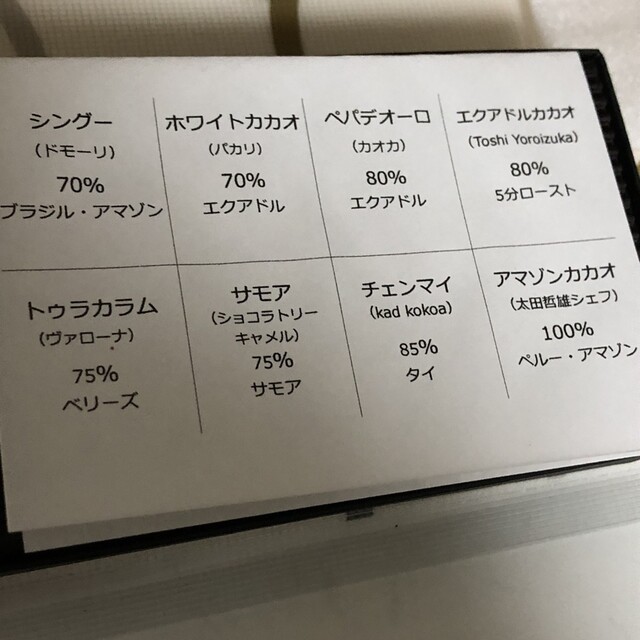 シングー
（ドモーリ）
70%
ブラジル・アマゾン
ホワイトカカオ
（パカリ）
70%
エクアドル
ペパデオーロ
（カオカ）
80%
エクアドル
エクアドルカカオ
（Toshi Yoroizuka）
80%
5分ロースト
トゥラカラム
（ヴァローナ）
75%
ベリーズ
サモア
（ショコラトリー
キャメル）
75%
サモア
チェンマイ
（kad kokoa）
85%
タイ
アマゾンカカオ
（太田哲雄シェフ）
100%
ペルー・アマゾン